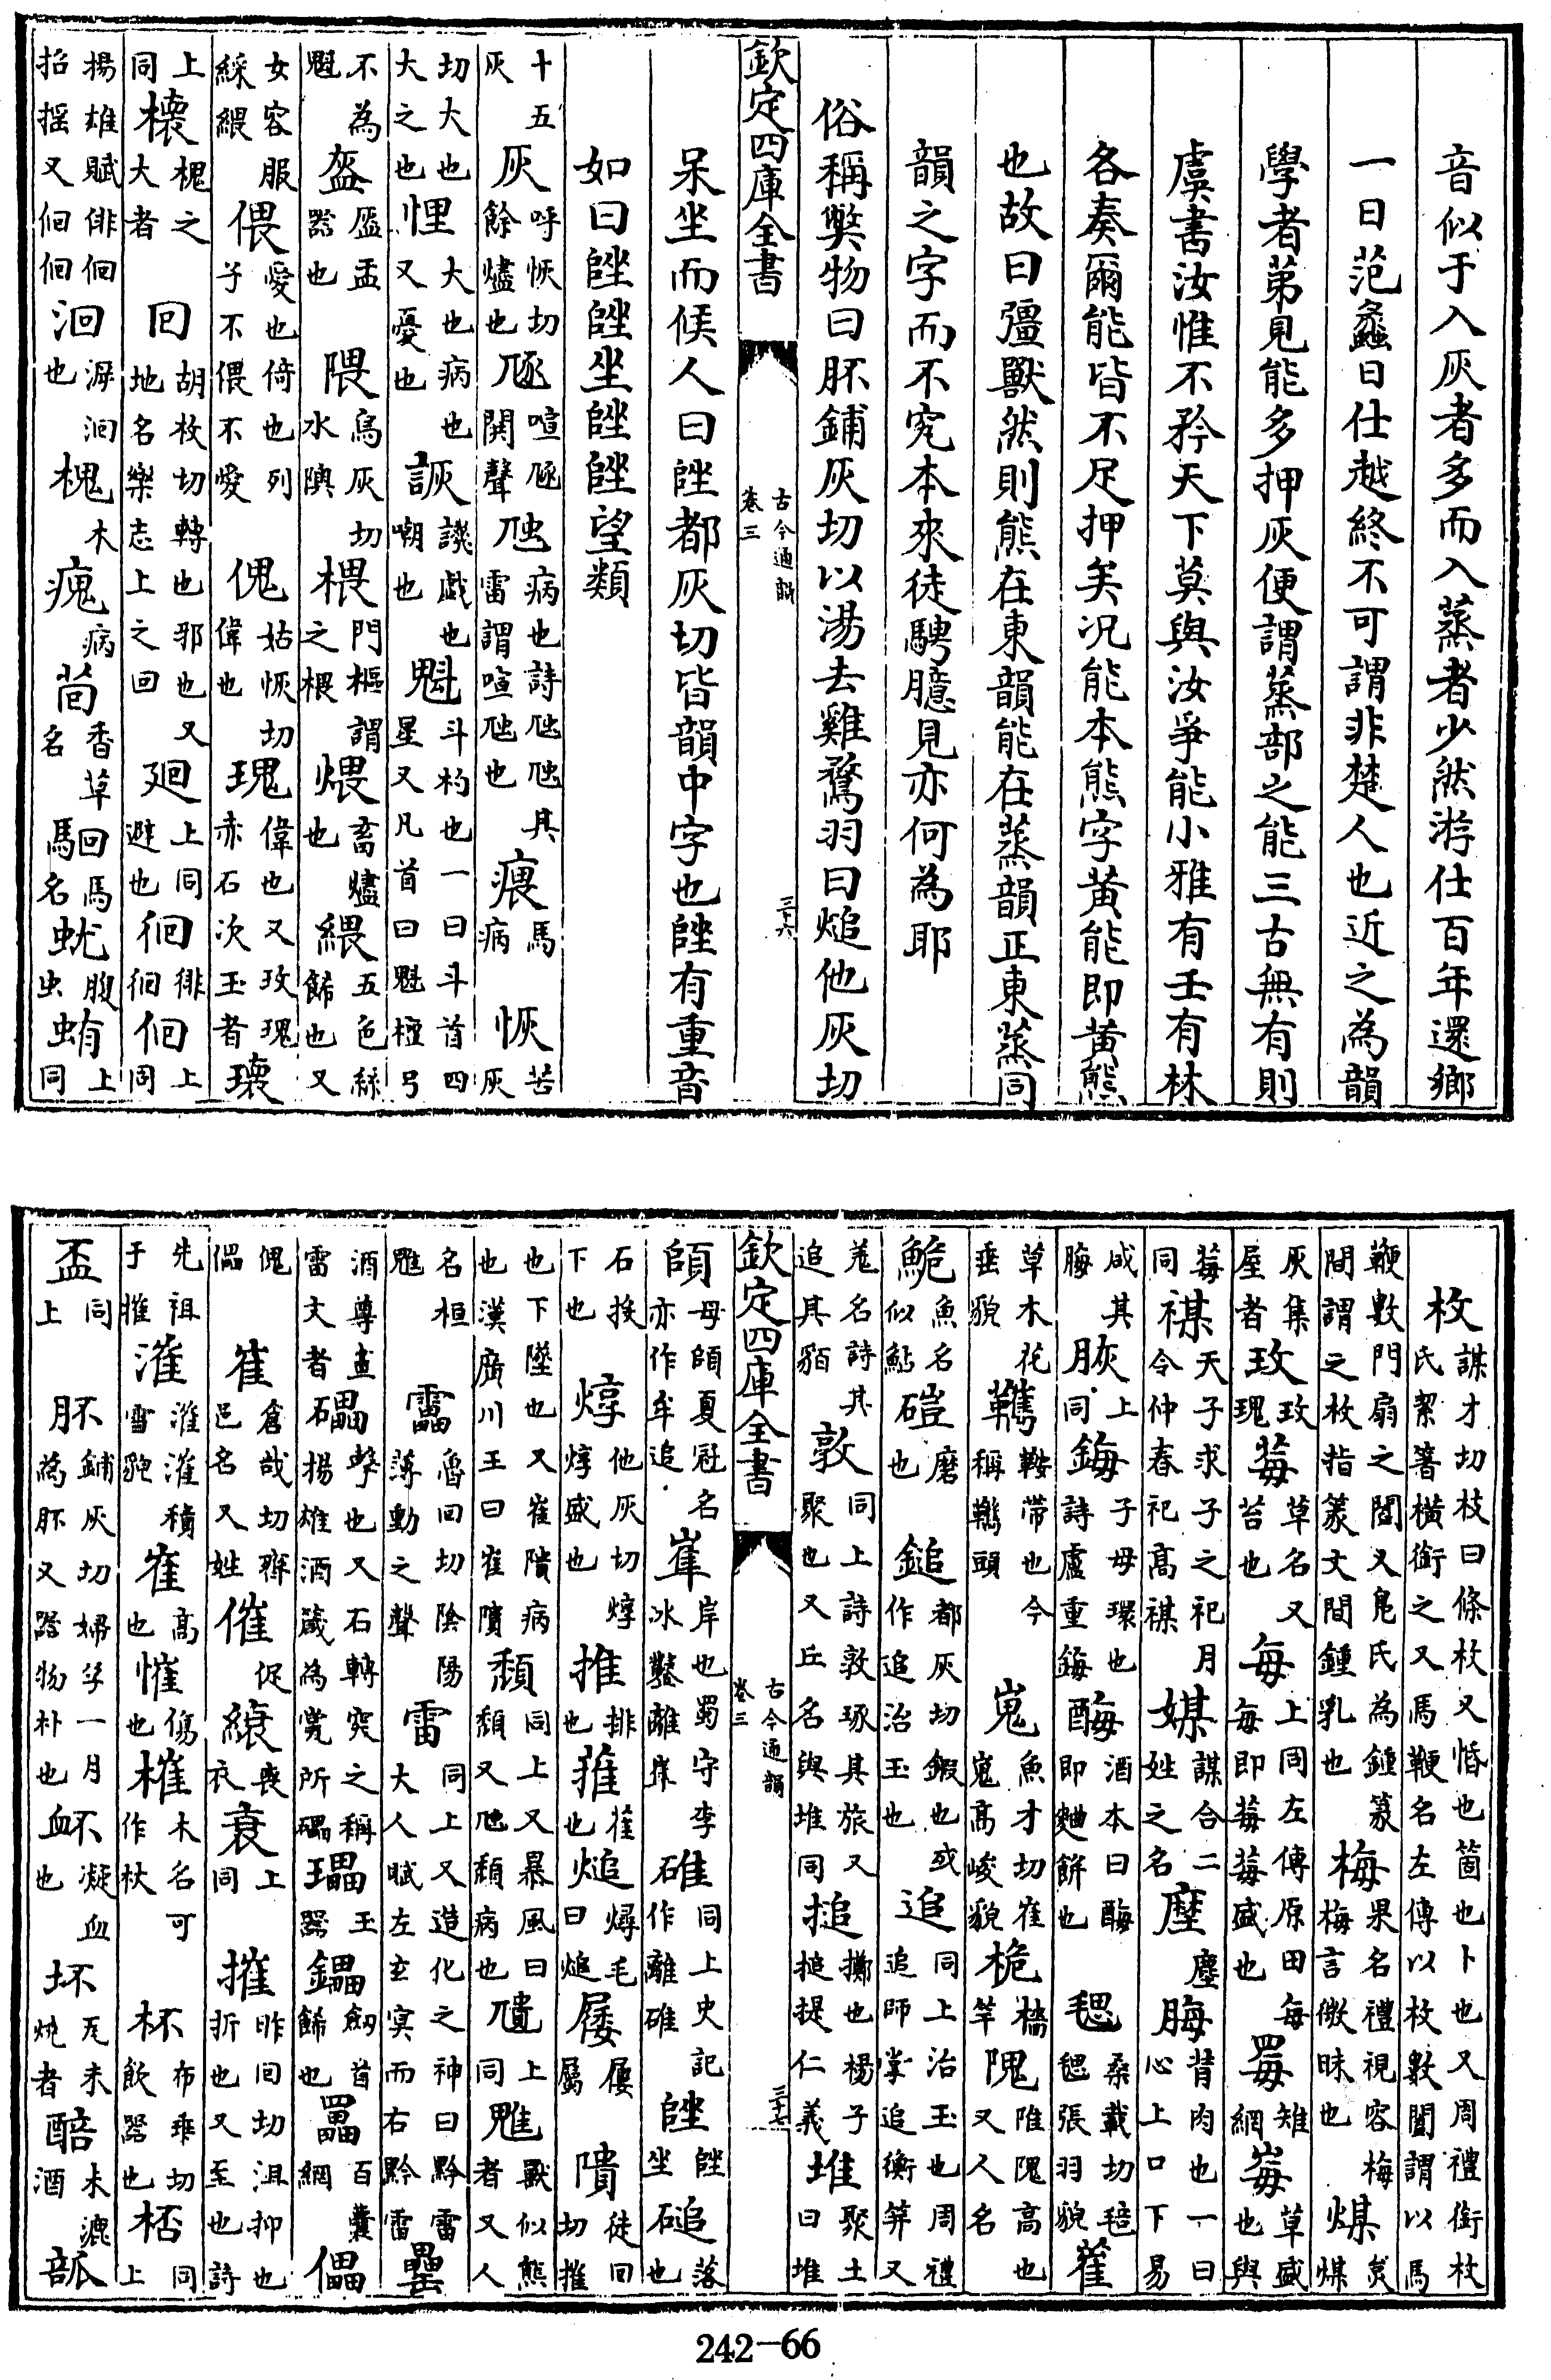 音似于入灰者多而入蒸者少然游仕百年還鄉
一日范蠡日仕越終不可謂非楚人也近之為韻
學者第見能多押灰便謂蒸部之能三古無有則
虞書汝惟不矜天下莫與汝爭能小雅有壬有林
各奏爾能皆不足押矣况能本熊字黃能即黃熊
也故曰彊獸然則熊在東韻能在蒸韻正東蒸同
韻之字而不究本來徒騁臆見亦何為耶
俗稱獘物曰肧鋪灰切以湯去雞鶩羽曰煺他灰切
欽定四庫全書 古今通韻卷三 三十六
呆坐而候人曰都灰切皆韻中字也有重音
如曰坐望類
十五灰 灰呼恢切餘燼也 豗喧豗鬨聲 虺病也詩虺虺其雷謂喧虺也 瘣馬病 恢苦灰
切大也大之也 悝大也病也又憂也 詼譏戲也嘲也 魁斗杓也一曰斗首四星又凡首曰魁檀弓
不為魁 盔盔盂器也 隈烏灰切水隩 椳門樞謂之椳 煨畜燼也 緦五色絲飾也又
女容服綵緦 偎愛也倚也列子不偎不愛 傀姑恢切偉也 瑰偉也又玫瑰赤石次玉者 瓌
上同 櫰槐之大者 回胡枚切轉也邪也又地名樂志上之回 廻上同避也 徊徘徊 佪上同
揚雄賦俳佪招搖又佪佪 洄漩洄也 槐木 瘣病 茴香草名 回馬馬名 蚘腹虫 蛕上同
枚謀才切枝曰條枚又惛也箇也卜也又周禮銜枚氏絜箸橫銜之又馬鞭名左傳以枚數闔謂以馬
鞭數門扇之闔又鳧氏為鍾篆間謂之枚指篆文間鍾乳也 梅果名禮視容梅梅言微昧也 煤炱煤
灰集屋者 玫玫瑰 莓草名又苔也 每上同左傳原田每每即莓莓盛也 罞雉網也 莓草盛也與
莓同 禖天子求子之祀月令仲春祀高禖 媒謀合二姓之名 塺塵 脢背肉也一曰心上口下易
咸其脢 脄上同 鋂子母環也詩盧重鋂 酶酒本曰酶即麯餅也 毸桑載切毰毸張羽貌 蓷
草木花垂貌 鞲鞍帶也今稱鞲頭 嵬魚才切崔嵬高峻貌 桅檣竿 隗陮隗高也又人名
鮠魚名似鮎 磑磨也 鎚都灰切鍜也或作追治玉也 追同上治玉也周禮追師掌追衡笄又
蒐名詩其追其貊 敦同上詩敦琢其旅又聚也又丘名與堆同 搥擲也楊子搥提仁義 堆聚土曰堆
欽定四庫全書 古今通韻卷三 三十七
頧母頧夏冠名亦作牟追 崔岸也蜀守李冰鑿離 碓同上史記作離碓 坐 磓落也
石投下也 焞他灰切焞焞盛也 推排也 蓷萑也 煺燖毛曰煺 㞂屬 隤徒回切摧
也下墜也又崔隤病也漢廣川王曰崔隤 頹同上又暴風曰頹又虺頹病也 上同 魋獸似熊者又人
名桓魋 靁魯回切陰陽薄動之聲 雷同上又造化之神曰黔雷大人賦左玄冥而右黔雷 罍
酒尊畫雷文者 礧擊也又石轉突之稱揚雄酒箴為甇所礧 瓃玉器 鑘劒首飾也 罍百囊網 儡
傀儡 崔倉哉切齊邑名又姓 催促 縗喪衣 衰上同 摧昨回切沮抑也折也又至也詩
先祖于摧 漼漼漼積雪貌 崔高也 慛傷也 槯木名可作杖 杯布垂切飲器也 桮同上
盃同上 肧鋪灰切婦孕一月為肧又器物朴也 衃凝血也 坏瓦未燒者 醅未漉酒